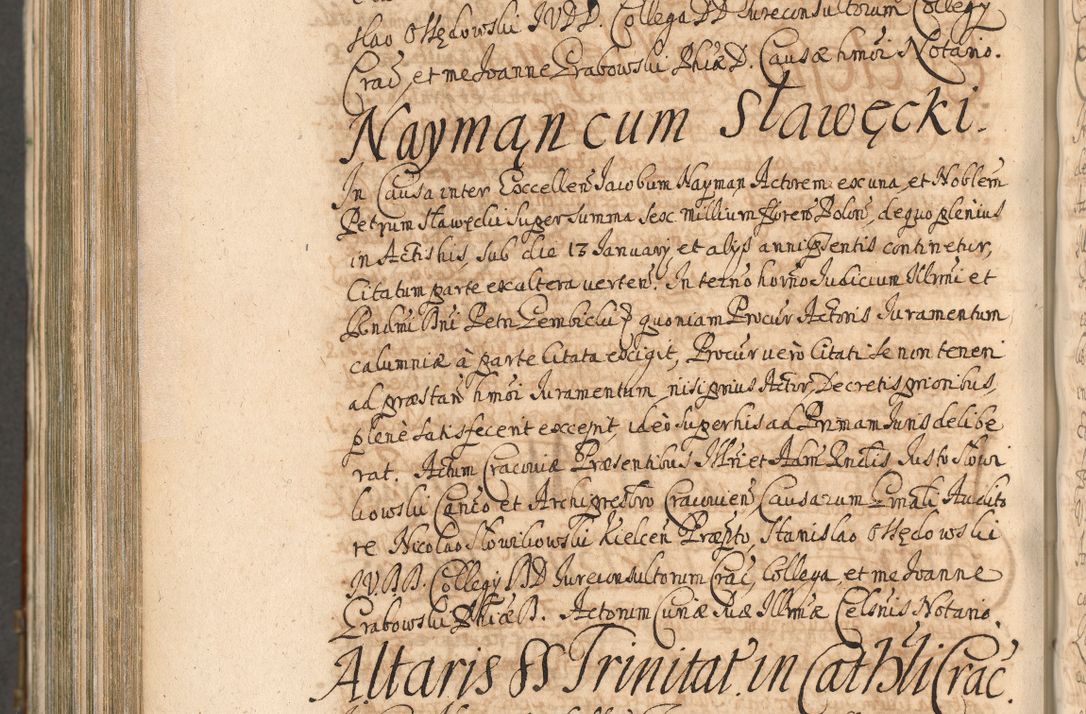 slao Ossędowski JVDD. Collega DD Jureconsultorum Collegy
Crac, et me Joanne Grabowski Phiæ D. Causæ hmoi Notario.
Naymąn cum Sławęcki.
In Causa inter Exccellen Jacobum Nayman Actorem ex una, et Noblem
Petrum Sławęcki super summa sex millium floren Polon, de quo plenius
in Actis his, sub die 13 January et alys anni psentis continetur,
Citatum parte ex altera verten. In termo horno Judicium Illmi et
Rndmi Dni Petri Gembicki quoniam Procur Actoris Juramentum
calumniæ à parte Citata exigit, Procur vero Citati se non teneri
ad præstan hmoi Juramentum, nisi prius Actor, Decretis prioribus,
plenè satisfecerit excepit, ideò super his ad Primam Juris delibe
rat. Actum Cracoviæ Præsentibus Illri et Adm Rndis Justo Słowi
kowski Canco et Archipresbro Cracovien, Causarum Gnali Audito
re Nicolao Słowikowski Kielcen Præpto, Stanislao Ossędowski
JVDD. Collegy DD Jureconsultorum Crac, Collega, et me Joanne
Grabowski Phiæ D. Actorum Curiæ suæ Illmæ Celsnis Notario.
Altaris SS Trinitat. in Cathli Crac.